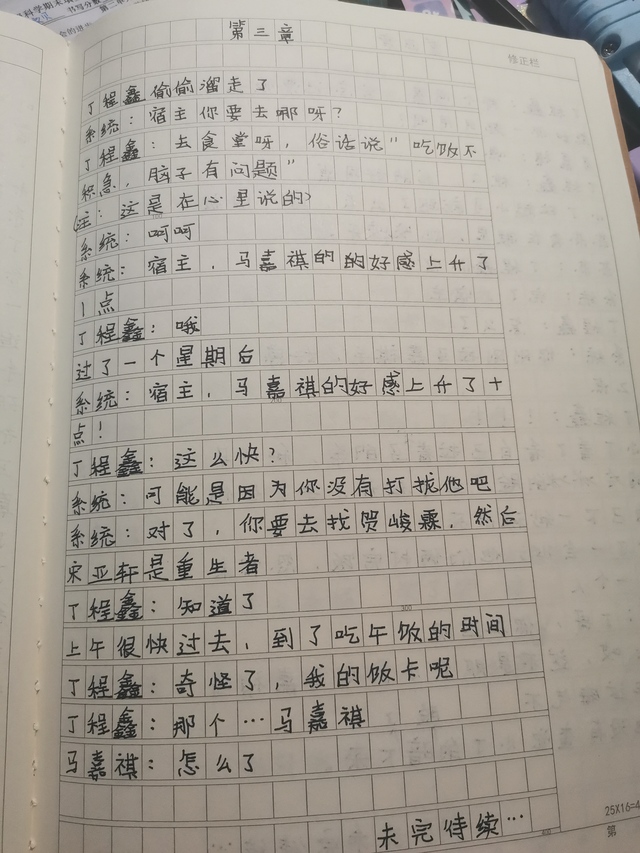 第三章
修正栏
丁程鑫偷偷溜走了
系统：宿主你要去哪呀？
丁程鑫：去食堂呀，俗话说"吃饭不
积急，脑子有问题"
（注：这是在心里说的）
系统：呵呵
系统：宿主，马嘉祺的的好感上升了
1点
丁程鑫：哦
过了一个星期后
系统：宿主，马嘉祺的好感上升了十
点！
丁程鑫：这么快？
系统：可能是因为你没有打扰他吧
系统：对了，你要去找贺峻霖，然后
宋亚轩是重生者
丁程鑫：知道了
上午很快过去，到了吃午饭的时间
丁程鑫：奇怪了，我的饭卡呢
丁程鑫：那个…马嘉祺
马嘉祺：怎么了
未完待续…
25X16=4
第